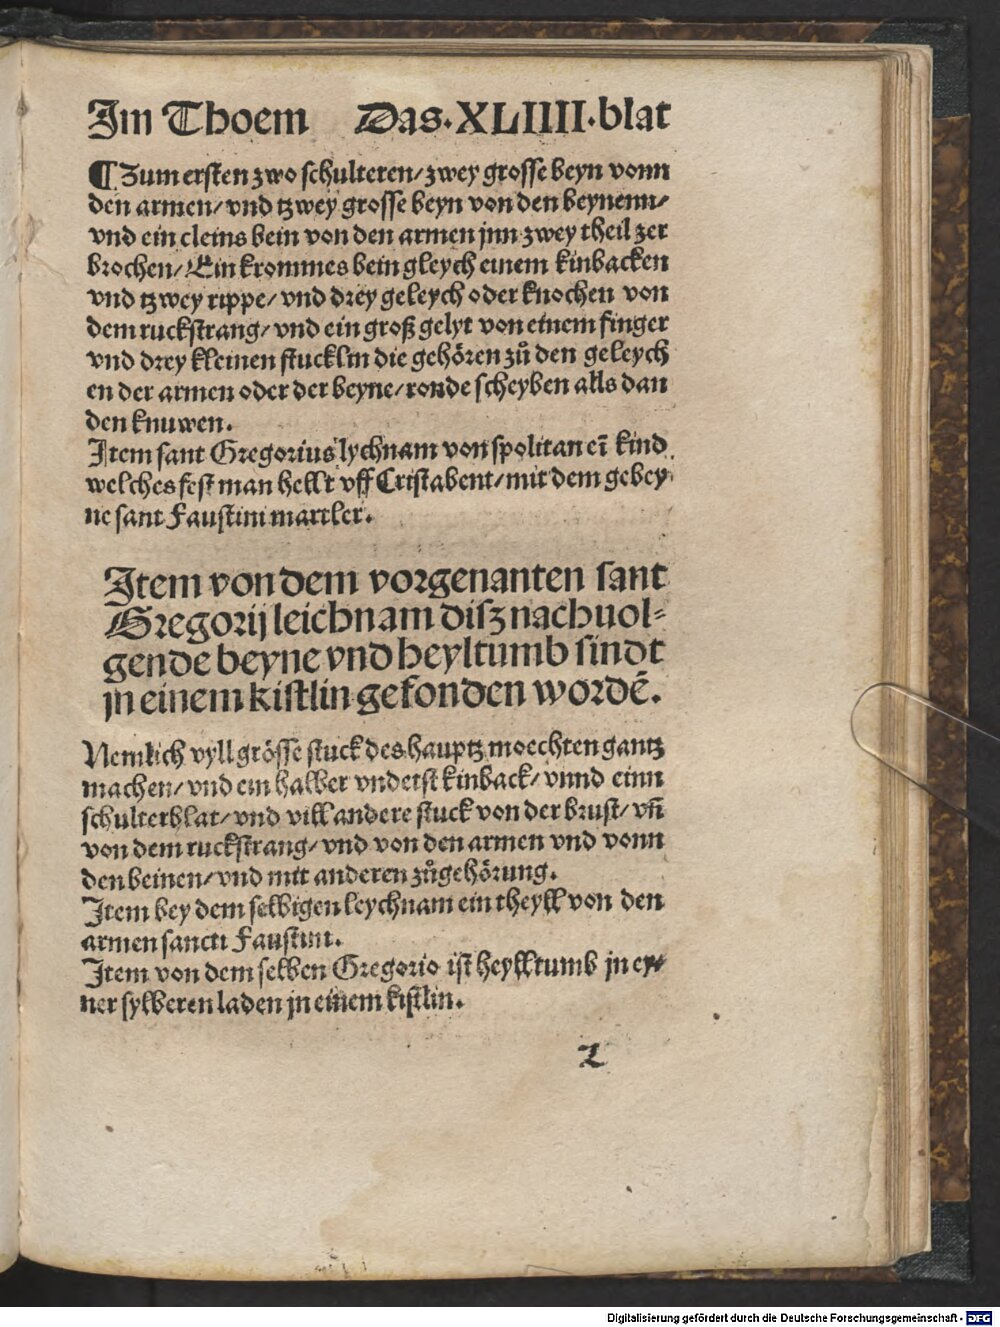 Im Thoem Das.XLIIII.blat
¶Zum ersten zwo schulteren/zwey grosse beyn vonn
den armen/vnd tzwey grosse beyn von den beynenn/
vnd ein cleins bein von den armen jnn zwey theil zer
brochen/Ein krommes bein gleych einem kinbacken
vnd tzwey rippe/vnd drey geleych oder knochen von
dem ruckstrang/vnd ein groß gelyt von einem finger
vnd drey kleinen stucklin die gehören zů den geleych
en der armen oder der beyne/ronde scheyben alls dan
den knuwen.
Item sant Gregorius lychnam von spolitan eī kind
welches fest man hellt vff Cristabent/mit dem gebey
ne sant Faustini martler.
Item von dem vorgenanten sant
Gregorij leichnam disz nachuol⸗
gende beyne vnd heyltumb sindt
jn einem kistlin gefonden wordē.
Nemlich vyll grösse stuck des hauptz moechten gantz
machen/vnd ein halber vnderst kinback/vnnd einn
schulterblat/vnd vill andere stuck von der brust/vñ
von dem ruckstrang/vnd von den armen vnd vonn
den beinen/vnd mit anderen zůgehörung.
Item bey dem selbigen leychnam ein theyll von den
armen sancti Faustini.
Item von dem selben Gregorio ist heylltumb jn ey⸗
ner sylberen laden jn einem kistlin.
Digitalisierung gefördert durch die Deutsche Forschungsgemeinschaft - DFG